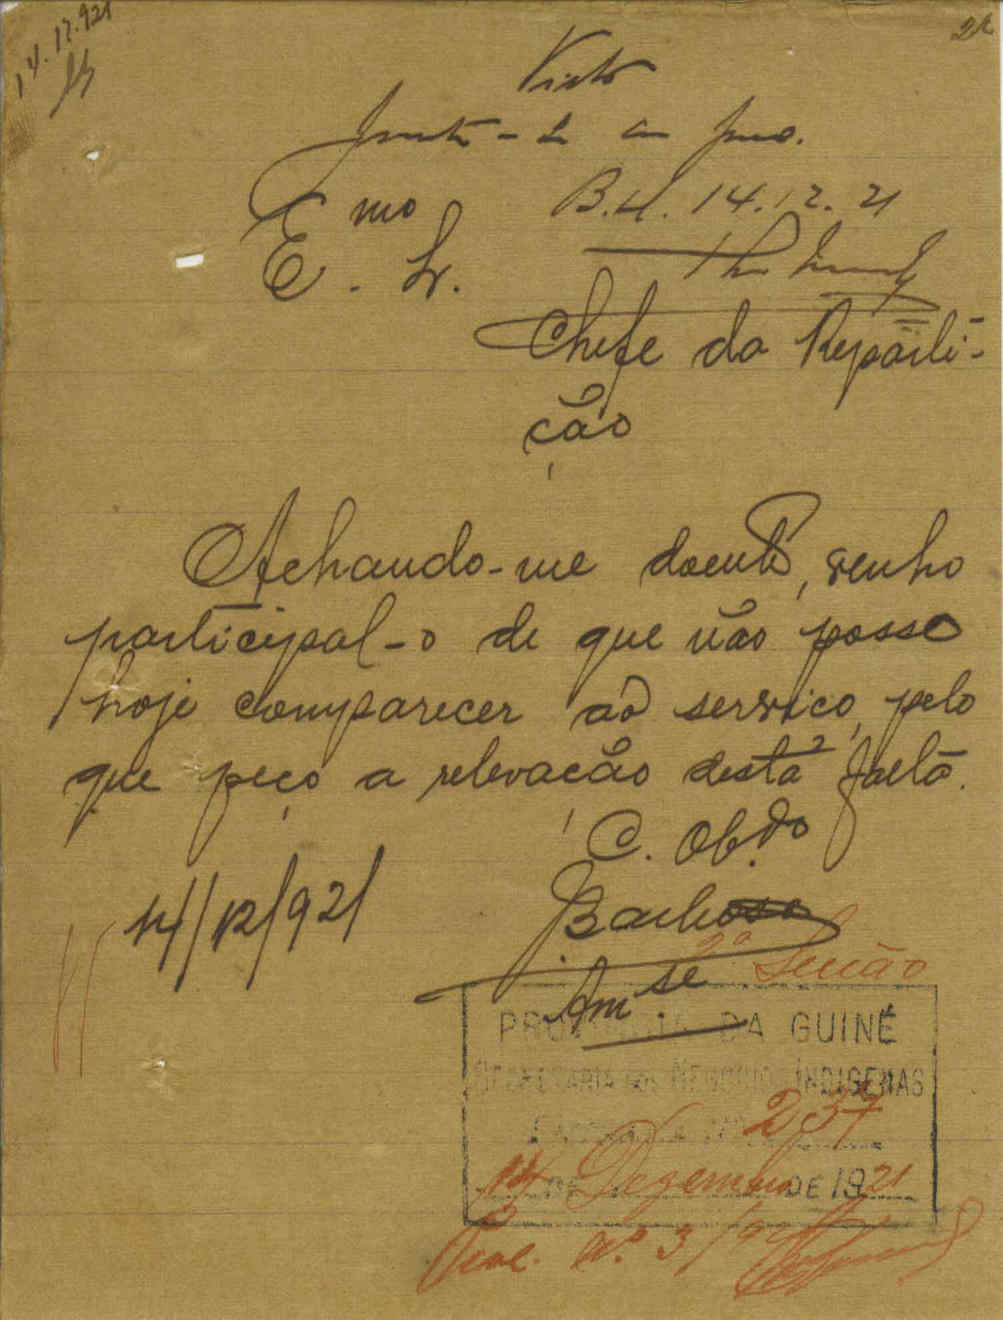 14.12.921
Visto
Junte-se ao proc.
B.L. 14.12.21
Exmo
E. Sr.
Chefe da Reparti-
ção
Achando-me doente, venho
participal-o de que não posso
hoje comparecer ao serviço, pelo
que peço a relevação desta falta.
C. Obgdo
Barbosa
Amse
14/12/921
2ª Secção
PROVINCIA DA GUINÉ
SECRETARIA DOS NEGOCIOS INDIGENAS
ENTRADA Nº 237
14 DE Dezembro DE 1921
Proc. Nº 3